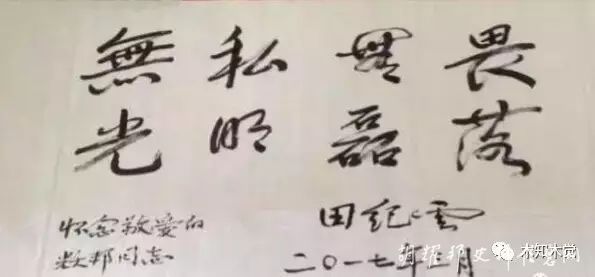 無私無畏
光明磊落
怀念敬爱的
耀邦同志
田紀雲
二〇一七年月
胡耀邦史料信息网
木知木觉